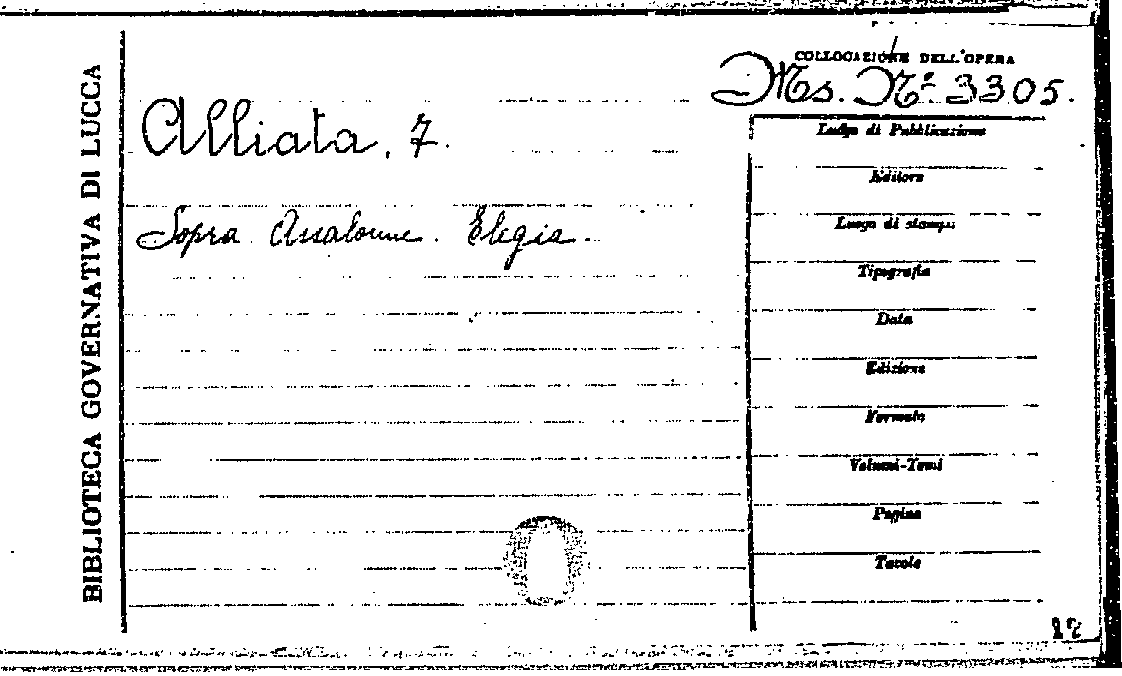 BIBLIOTECA GOVERNATIVA DI LUCCA
COLLOCAZIONE DELL'OPERA
Ms. N° 3305.
Alliata, 7.
Sopra Assalonne. Elegia.
Luogo di Pubblicazione
Editore
Luogo di stampa
Tipografia
Data
Edizione
Formato
Volumi-Tomi
Pagine
Tavole